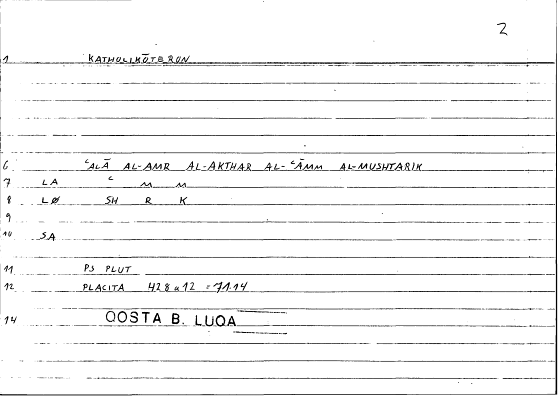 2
1 KATHOLIKŌTERON
6 ʿALĀ AL-AMR AL-AKTHAR AL-ʿĀMM AL-MUSHTARIK
7 LA ʿ M M
8 LØ SH R K
9
10 SA
11 PS PLUT
12 PLACITA 428 a 12 = 71.14
14 QOSTA B. LUQA